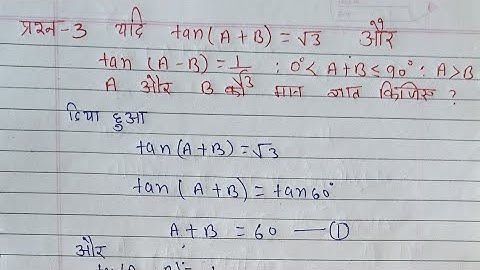 प्रश्न-3 यदि tan(A+B) = √3 और
tan (A-B) = 1/√3 ; 0°< A+B ≤ 90° ; A>B
A और B का मान ज्ञात किजिए ?
दिया हुआ
tan(A+B) = √3
tan(A+B) = tan60°
A+B = 60 — ①
और